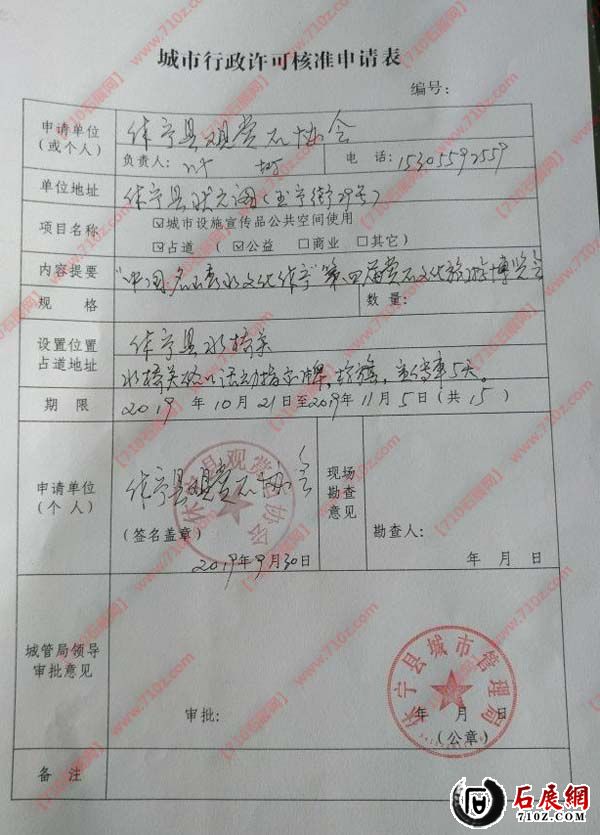 城市行政许可核准申请表
编号：
申请单位
（或个人）
休宁县观赏石协会
负责人：
电 话：15305592559
单位地址
休宁县状元阁（玉宁街29号）
项目名称
☑城市设施宣传品公共空间使用
☑占道 （☑公益 □商业 □其它）
内容提要
"中国名山秀水文化休宁"第四届赏石文化旅游博览会
规 格
数 量：
设置位置
占道地址
休宁县水榜关
期 限
2019 年 10 月 21 日至 2019 年 11 月 5 日（共 15 ）
申请单位
（个 人）
休宁县观赏石协会
（签名盖章）
2019年9月30日
休宁县观赏石协会
现场
勘查
意见
勘查人：
年 月 日
城管局领导
审批意见
审批：
年 月 日
（公章）
休宁县城市管理局
备 注
石展網
710z.com
【710石展网】 www.710z.com